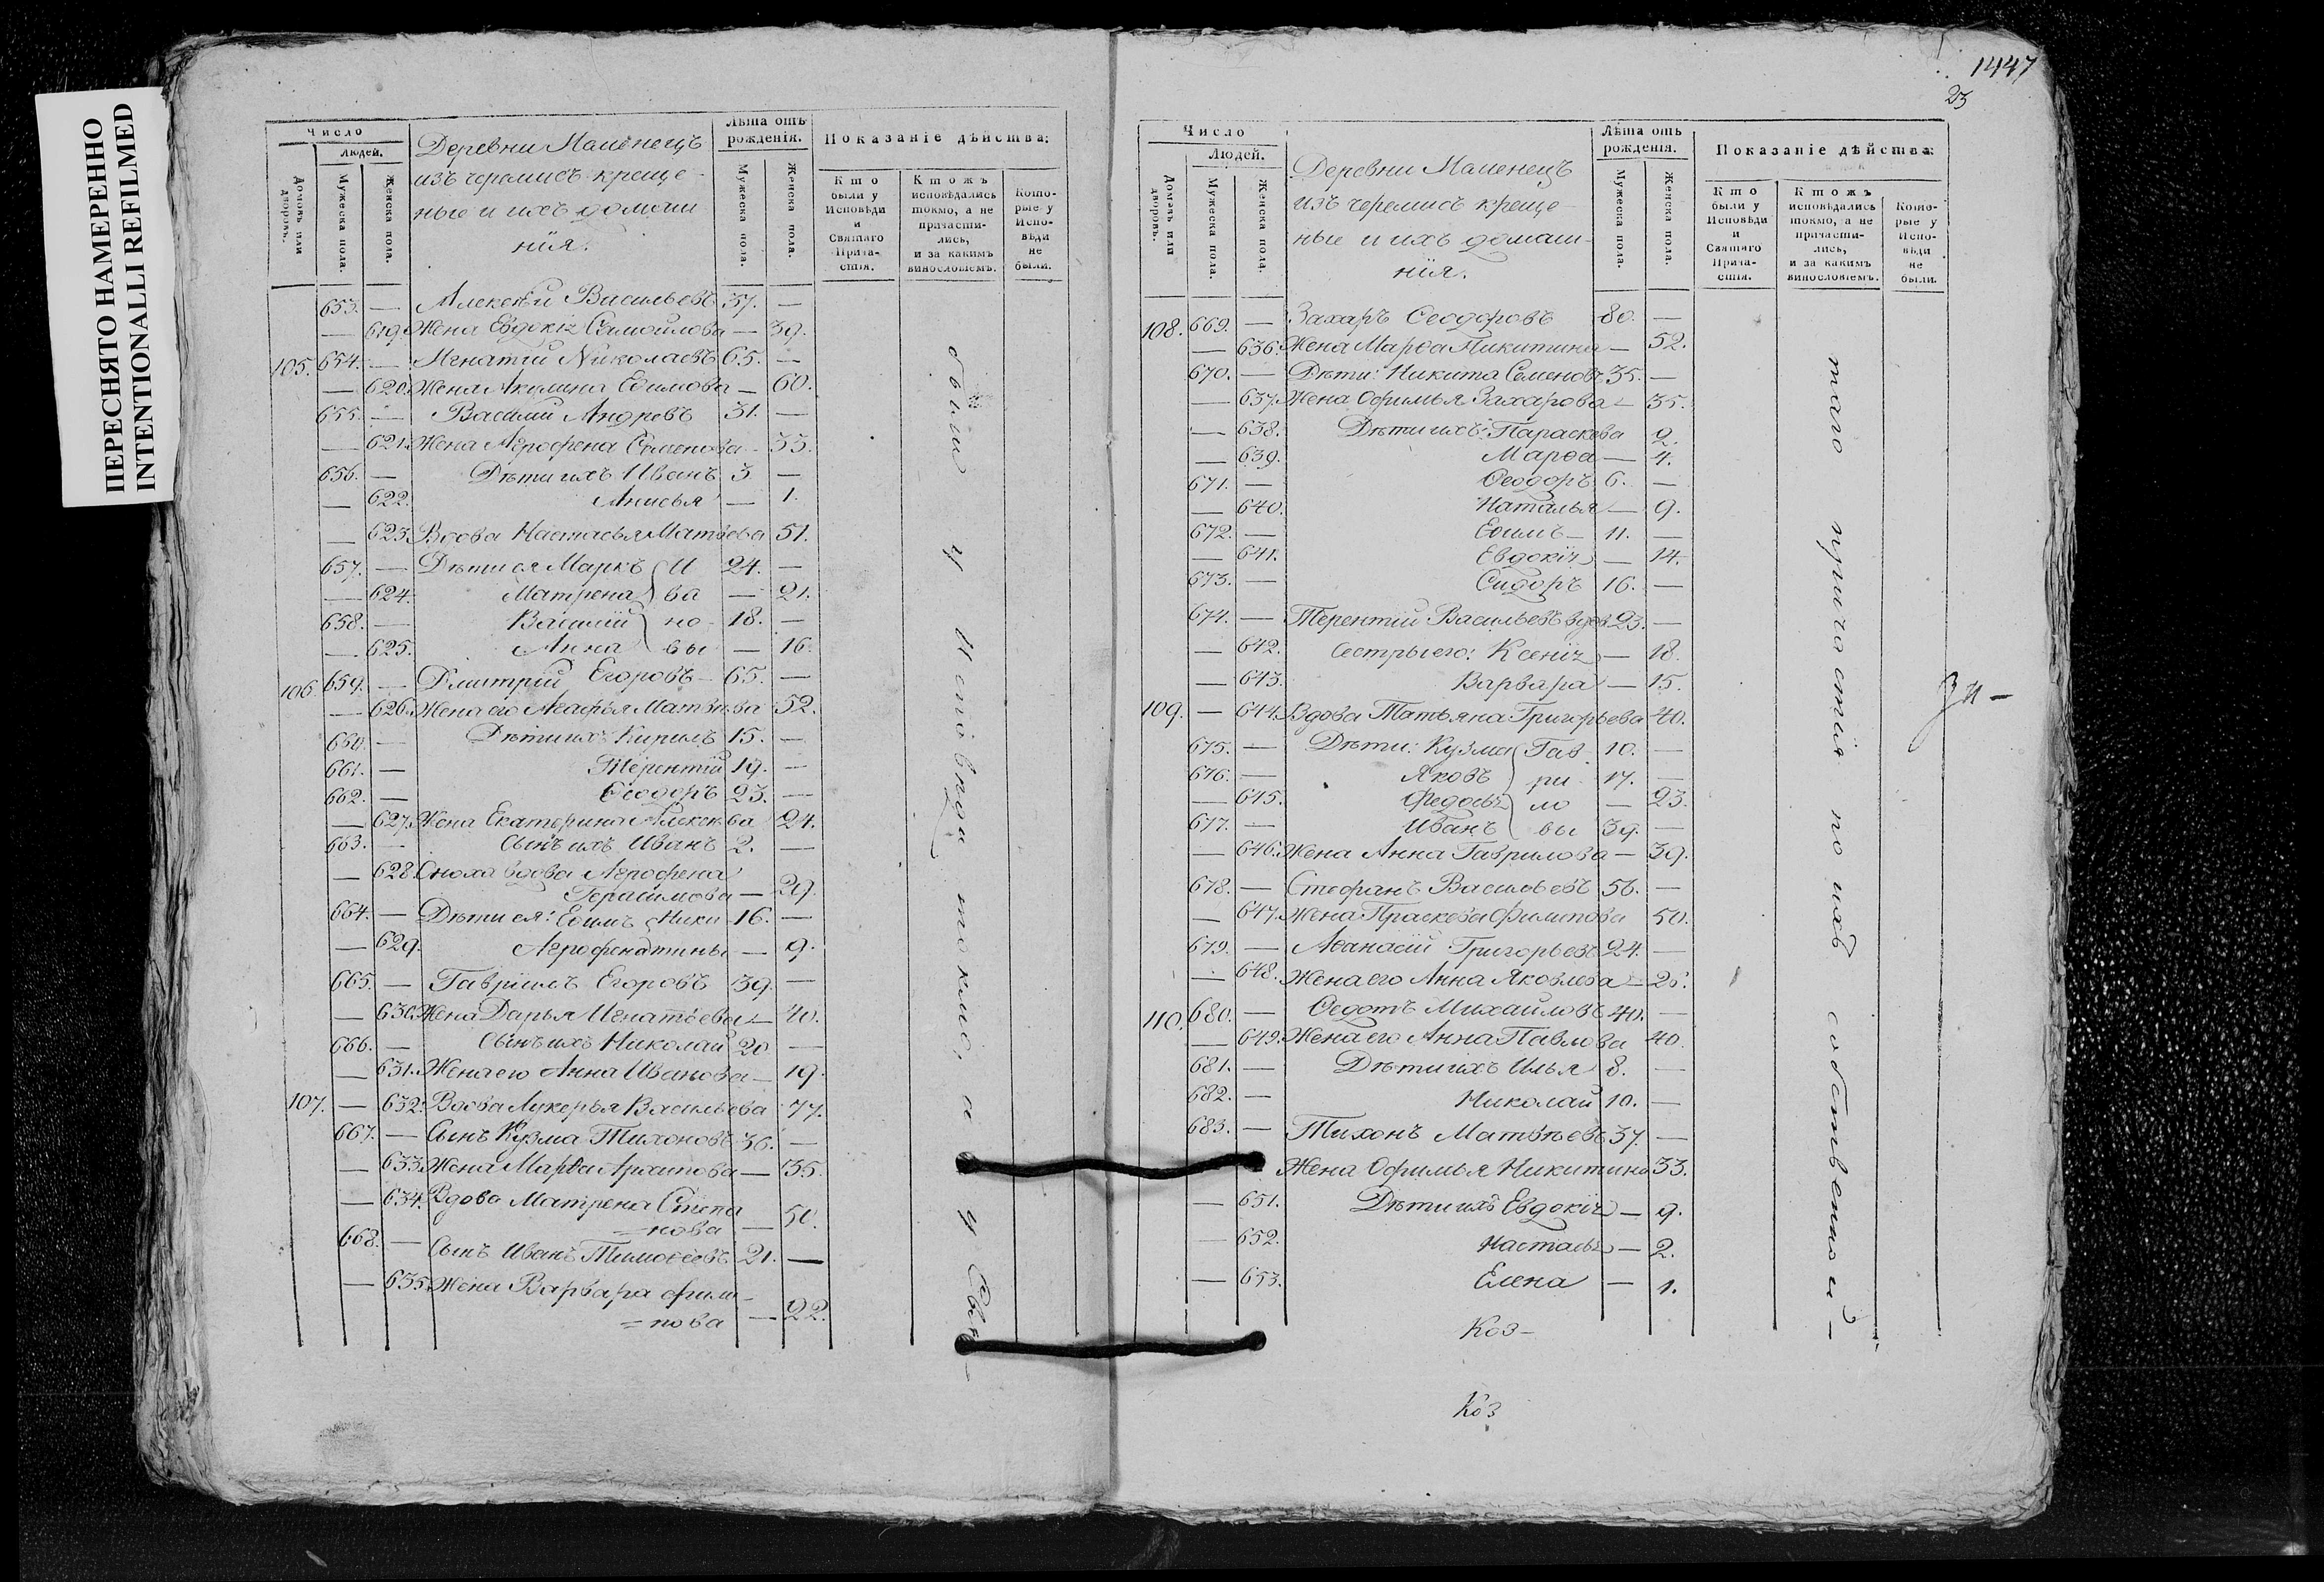 ПЕРЕСНЯТО НАМЕРЕННО
INTENTIONALLI REFILMED
Число
Людей.
Домовъ или дворовъ.
Мужеска пола.
Женска пола.
Деревни Маменецъ
изъ черемисъ креще-
ные и ихъ домаш
нія.
Лѣта отъ рожденія.
Мужеска пола.
Женска пола.
Показаніе дѣйства:
Кто были у Исповѣди и Святаго Прича-стія.
Ктожъ исповѣдались токмо, а не причасти-лись, и за какимъ винословіемъ.
Кото-рые у Испо-вѣди не были.
653. — Алексѣй Васильевъ 37. —
— 619. Жена Евдокія Самойлова — 39.
105. 654. — Игнатій Николаевъ 65. —
— 620. Жена Акилина Ефимова — 60.
655. — Василий Андревъ 31. —
— 621. Жена Агрофена Семенова — 33.
656. — Дѣти ихъ Иванъ 3 —
— 622. Анисья — 1.
— 623. Вдова Настасья Матвева 51.
657. — Дѣти ея Маркъ И 24. —
— 624. Матрена ва — 21.
658. — Василій но 18. —
— 625. Анна вы — 16.
106 659. — Дмитрій Егоровъ — 65. —
— 626. Жена его Агафья Матвѣва 52.
660. — Дѣти ихъ Кирилъ 15. —
661. — Терентій 19. —
662. — Ѳеодоръ 23. —
— 627. Жена Екатерина Алексѣва 24.
663. — Сынъ ихъ Иванъ 2. —
— 628 Сноха вдова Агрофена
Герасимова — 29.
664. — Дѣти ея: Ефимъ Ники 16. —
— 629. Агрофена тины — 9.
665. — Гавріилъ Егоровъ 39. —
— 630. Жена Дарья Игнатьева — 40.
666. — Сынъ ихъ Николай 20 —
— 631. Жена его Анна Иванова — 19.
107. — 632. Вдова Лукерья Васильева 77.
667. — Сынъ Кузма Тихоновъ 36. —
— 633. Жена Марѳа Архипова — 35.
— 634. Вдова Матрена Степа
=нова — 50.
668. — Сынъ Иванъ Тимоѳеевъ 21. —
— 635. Жена Варвара Фили-
=пова — 22.
были у исповѣди токмо, а не у Свя
1447
23
Число
Людей.
Домовъ или дворовъ.
Мужеска пола.
Женска пола.
Деревни Маменецъ
изъ черемисъ креще-
ные и ихъ домаш-
нія.
Лѣта отъ рожденія.
Мужеска пола.
Женска пола.
Показаніе дѣйства:
Кто были у Исповѣди и Святаго Прича-стія.
Ктожъ исповѣдались токмо, а не причасти-лись, и за какимъ винословіемъ.
Кото-рые у Испо-вѣди не были.
108. 669. — Захаръ Ѳеодоровъ 80. —
— 636. Жена Марѳа Никитина — 52.
670. — Дѣти: Никита Семеновъ 35. —
— 637. Жена Офимья Захарова — 35.
— 638. Дѣти ихъ: Параскева 2.
— 639. Марѳа — 4.
671. — Ѳеодоръ 6. —
— 640. Наталья — 9.
672. — Ефимъ — 11. —
— 641. Евдокія — 14.
673. — Сидоръ 16. —
674. — Терентій Васильевъ вдов 23. —
— 642. Сестры его: Ксенія — 18.
— 643. Варвара — 15.
109. — 644. Вдова Татьяна Григорьева 40.
675. — Дѣти: Кузма Гав 10. —
676. — Яковъ ри 17. —
— 645. Федосья ло — 23.
677. — Иванъ вы 39. —
— 646. Жена Анна Гаврилова — 39.
678. — Стефанъ Васильевъ 56. —
— 647. Жена Праскева Филипова 50.
679. — Аѳанасій Григорьевъ 24. —
— 648. Жена его Анна Яковлева — 26.
110. 680. — Ѳедотъ Михайловъ 40. —
— 649. Жена его Анна Павлова 40.
681. — Дѣти ихъ Илья 8. —
682. — Николай 10. —
683. — Тихонъ Матвѣевъ 37. —
Жена Офимья Никитина 33.
— 651. Дѣти ихъ Евдокія — 9.
— 652. Настасья — 2.
— 653. Елена — 1.
Коз-
Коз
таго причастія по ихъ собственной —